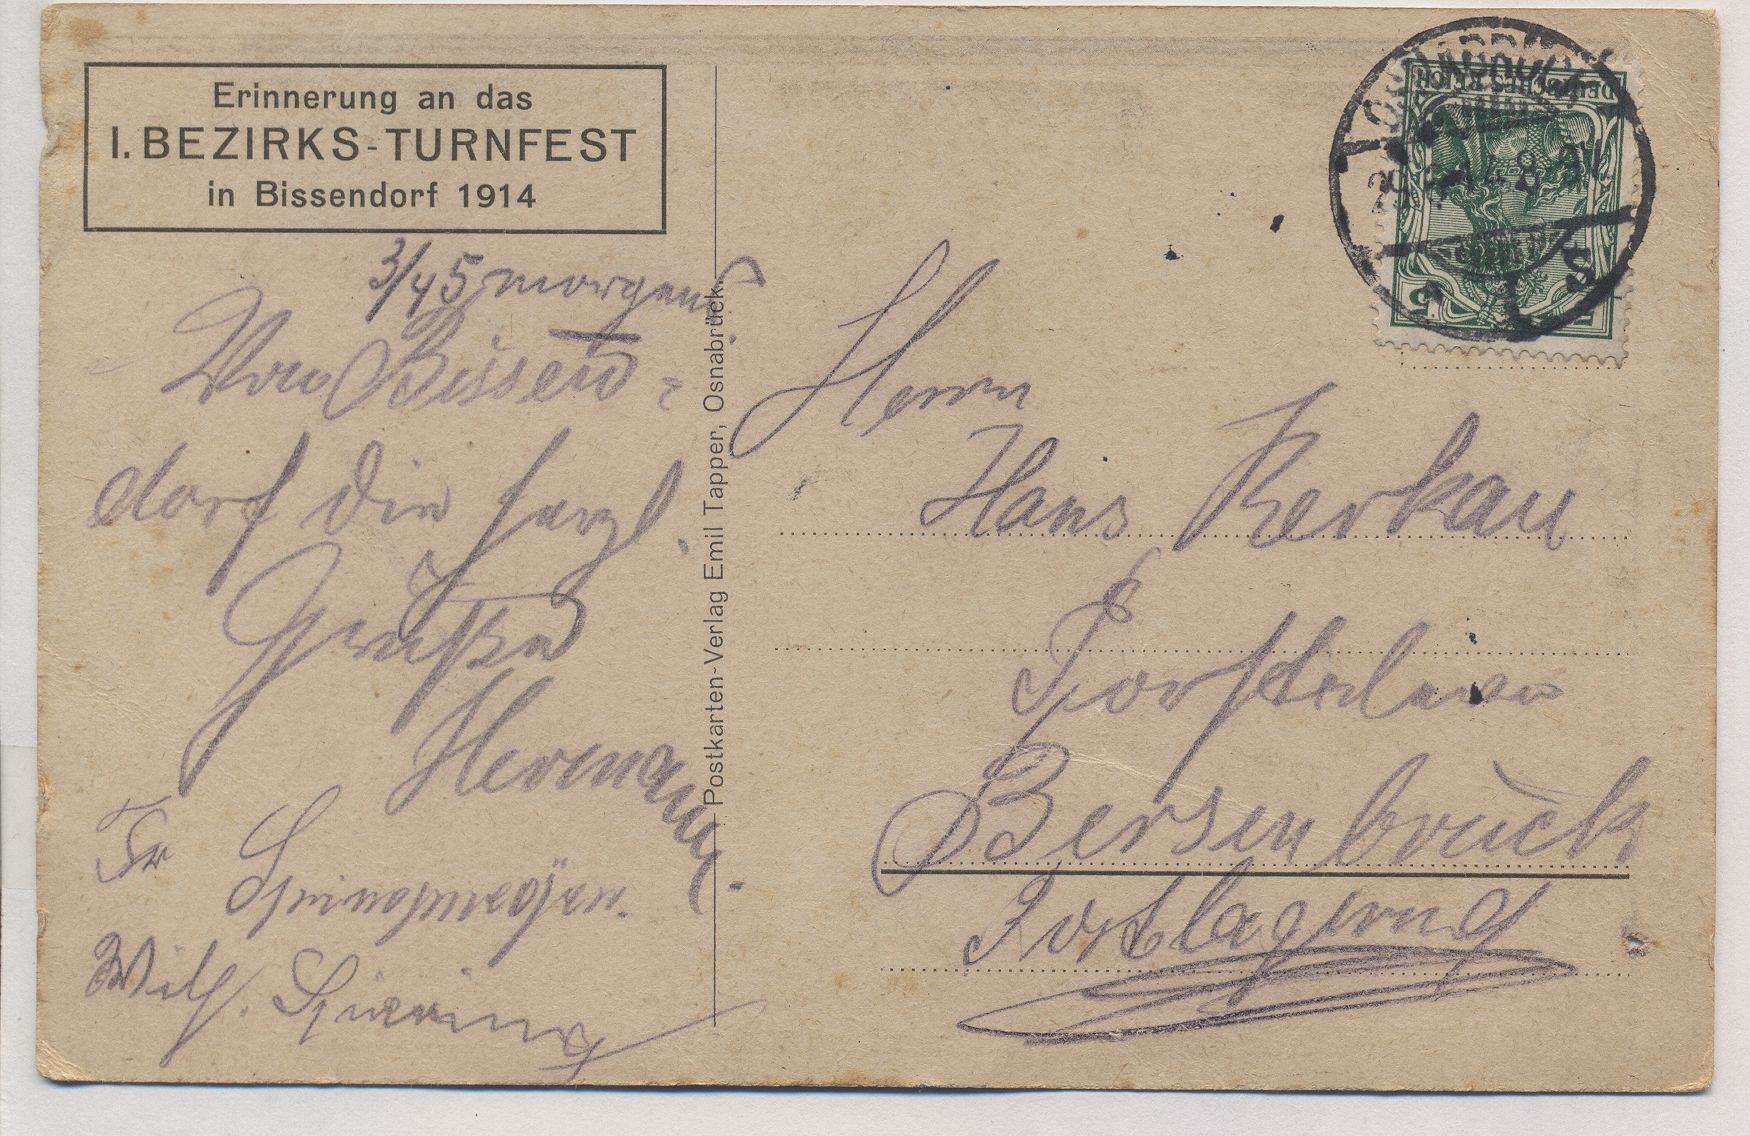 Erinnerung an das
I. BEZIRKS-TURNFEST
in Bissendorf 1914
3/45 morgens
Von Bissen-
dorf die herzl.
Grüße
Hermann.
Fr
Wilh.
Postkarten-Verlag Emil Tapper, Osnabrück.
DEUTSCHES REICH
5 5
OSNABRÜCK
Herrn
Hans Kerkau
Bersenbrück
Postlagernd